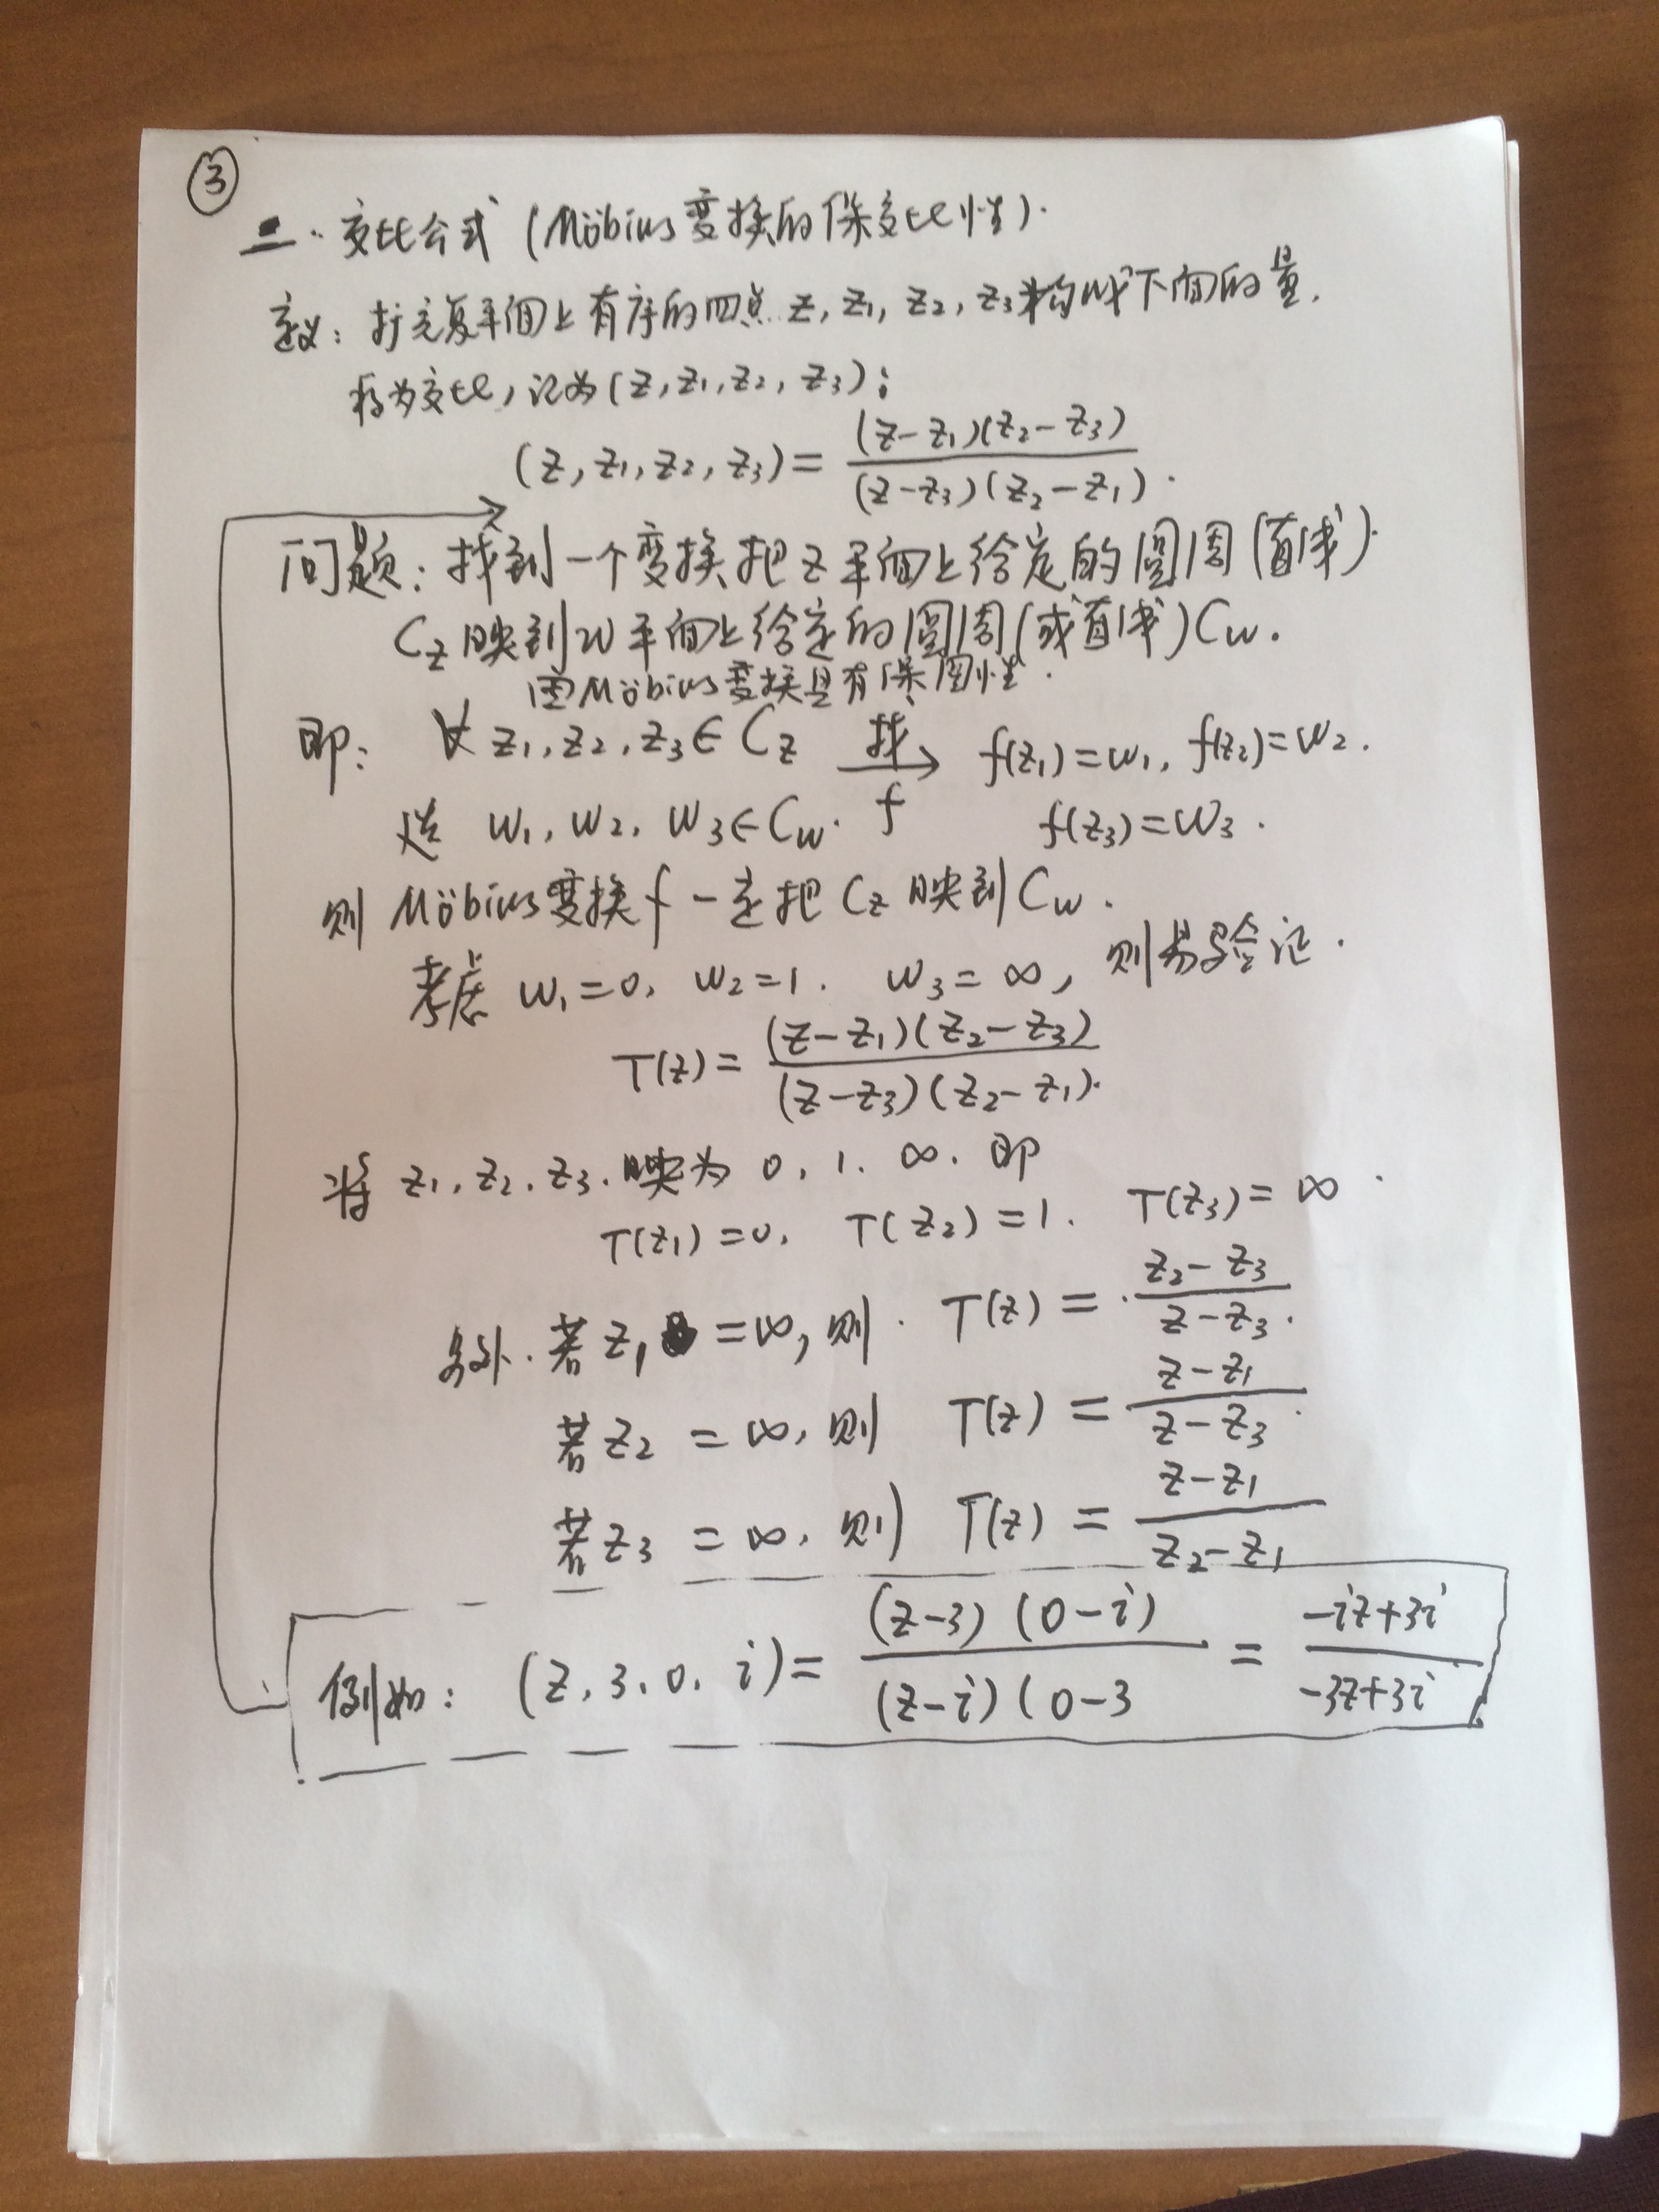 ③
二. 交比公式 (Möbius变换的保交比性).
定义: 扩充复平面上有序的四点 z, z₁, z₂, z₃ 构成下面的量,
称为交比, 记为 (z, z₁, z₂, z₃):
(z, z₁, z₂, z₃) = (z-z₁)(z₂-z₃) / (z-z₃)(z₂-z₁).
问题: 找到一个变换把z平面上给定的圆周(直线)
C_z 映到w平面上给定的圆周(或直线) C_w.
因Möbius变换具有保圆性.
即: ∀ z₁, z₂, z₃ ∈ C_z 找 f → f(z₁)=w₁, f(z₂)=w₂.
选 w₁, w₂, w₃ ∈ C_w. f(z₃)=w₃.
则 Möbius变换 f 一定把 C_z 映到 C_w.
考虑 w₁=0, w₂=1. w₃=∞, 则易验证.
T(z) = (z-z₁)(z₂-z₃) / (z-z₃)(z₂-z₁).
将 z₁, z₂, z₃. 映为 0, 1. ∞. 即
T(z₁)=0, T(z₂)=1. T(z₃)=∞.
另外. 若 z₁ =∞, 则. T(z) = z₂-z₃ / z-z₃.
若 z₂ = ∞, 则 T(z) = z-z₁ / z-z₃.
若 z₃ = ∞, 则 T(z) = z-z₁ / z₂-z₁
例如: (z, 3, 0, i) = (z-3)(0-i) / (z-i)(0-3 = -iz+3i / -3z+3i